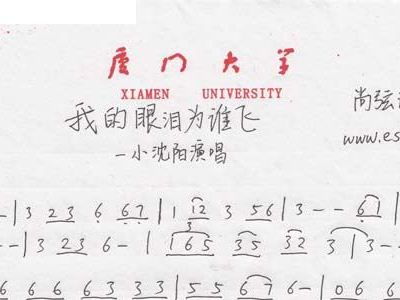 厦门大学
XIAMEN UNIVERSITY
我的眼泪为谁飞
尚弦
—小沈阳演唱
www.es
–|3 23 6 67|1 12 3 56|3 – – 61|
–|3 23 6 –|165 35 32 3|3 –
3
6 6 6 6 3 3 3|5 5 6 7 6 –|0 6 6